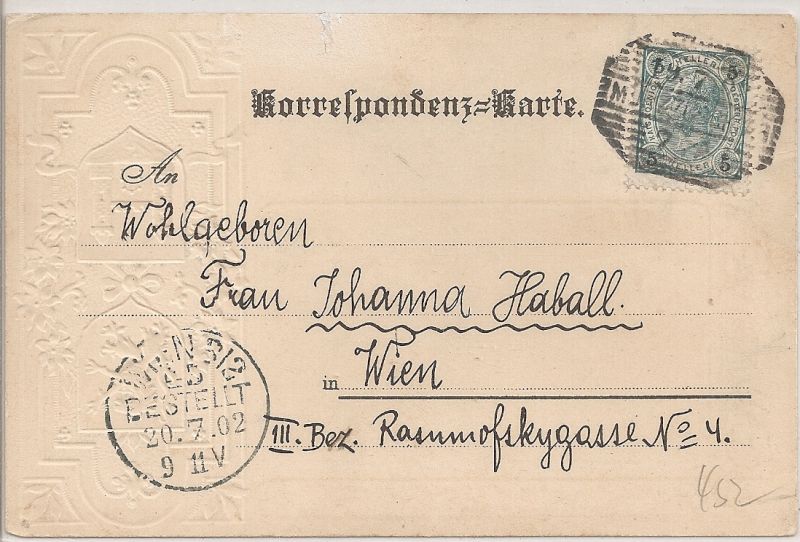 Korrespondenz=Karte.
5 HELLER 5
5 HELLER 5
An
Wohlgeboren
Frau Johanna Haball.
in Wien
III. Bez. Rasumofskygasse No 4.
WIEN
BESTELLT
20.7.02
9 11V
452